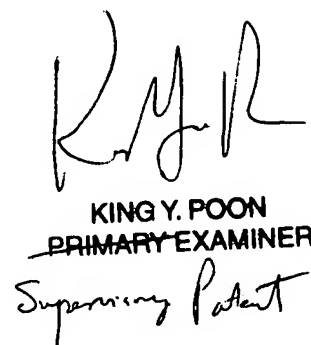 KING Y. POON
PRIMARY EXAMINER
Supervisory Patent